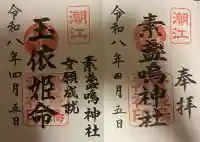 奉拝
潮江
素盞嗚神社
令和八年四月五日
素盞嗚神社
女願成就
潮江
玉依姫命
令和八年四月五日